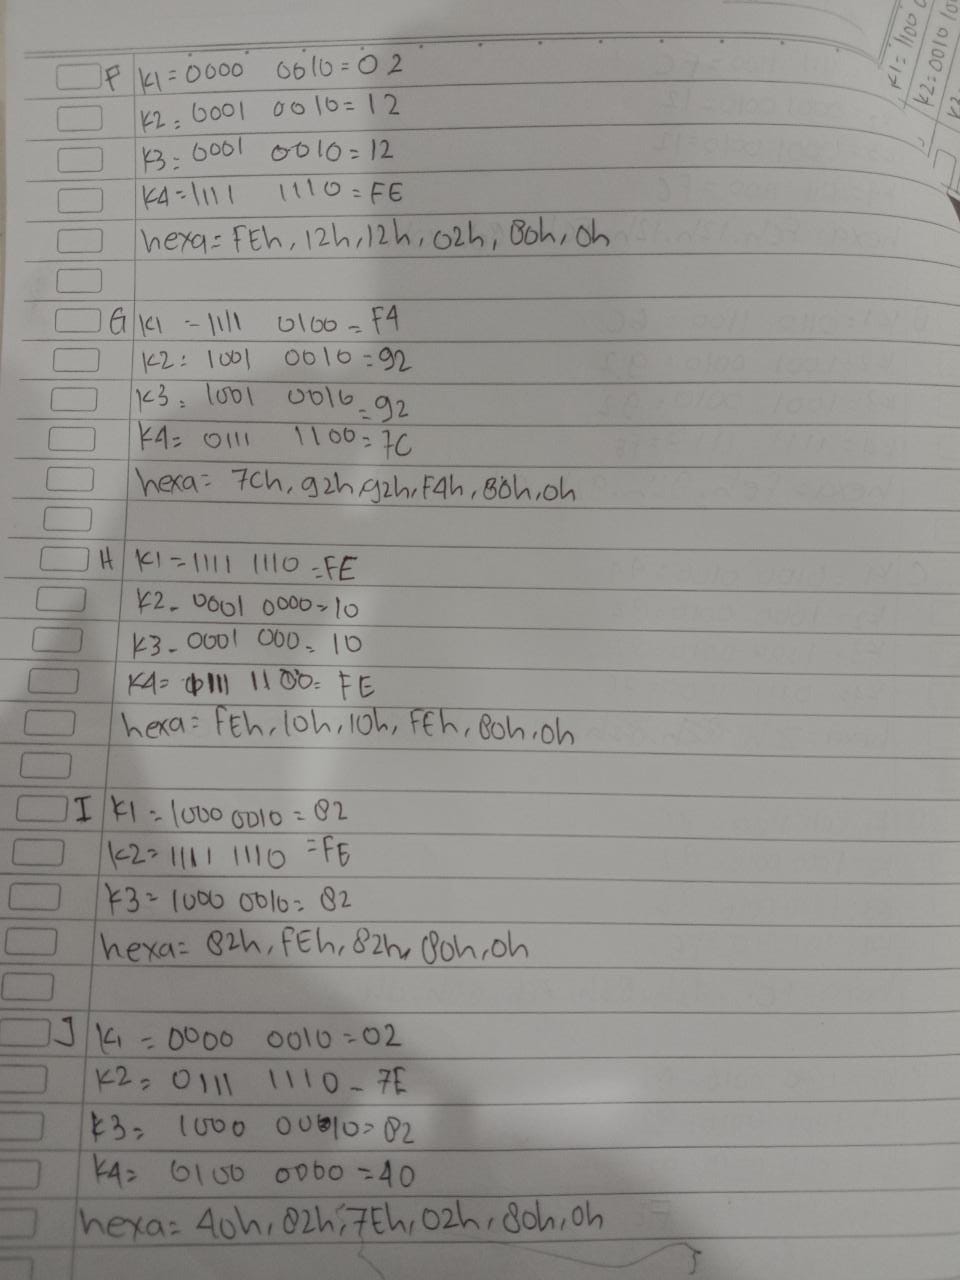 K1=1100
K2=0010
F K1=0000 0010=02
K2=0001 0010=12
K3=0001 0010=12
K4=1111 1110=FE
hexa=FEh, 12h, 12h, 02h, 80h, 0h
G K1 =1111 0100=F4
K2=1001 0010=92
K3=1001 0010=92
K4=0111 1100=7C
hexa=7Ch, 92h, 92h, F4h, 80h, 0h
H K1=1111 1110=FE
K2=0001 0000=10
K3=0001 000=10
K4=0111 1100=FE
hexa=FEh, 10h, 10h, FEh, 80h, 0h
I K1=1000 0010=82
K2=1111 1110=FE
K3=1000 0010=82
hexa=82h, FEh, 82h, 80h, 0h
J K1=0000 0010=02
K2=0111 1110=7E
K3=1000 0010=82
K4=0100 0000=40
hexa=40h, 82h, 7Eh, 02h, 80h, 0h